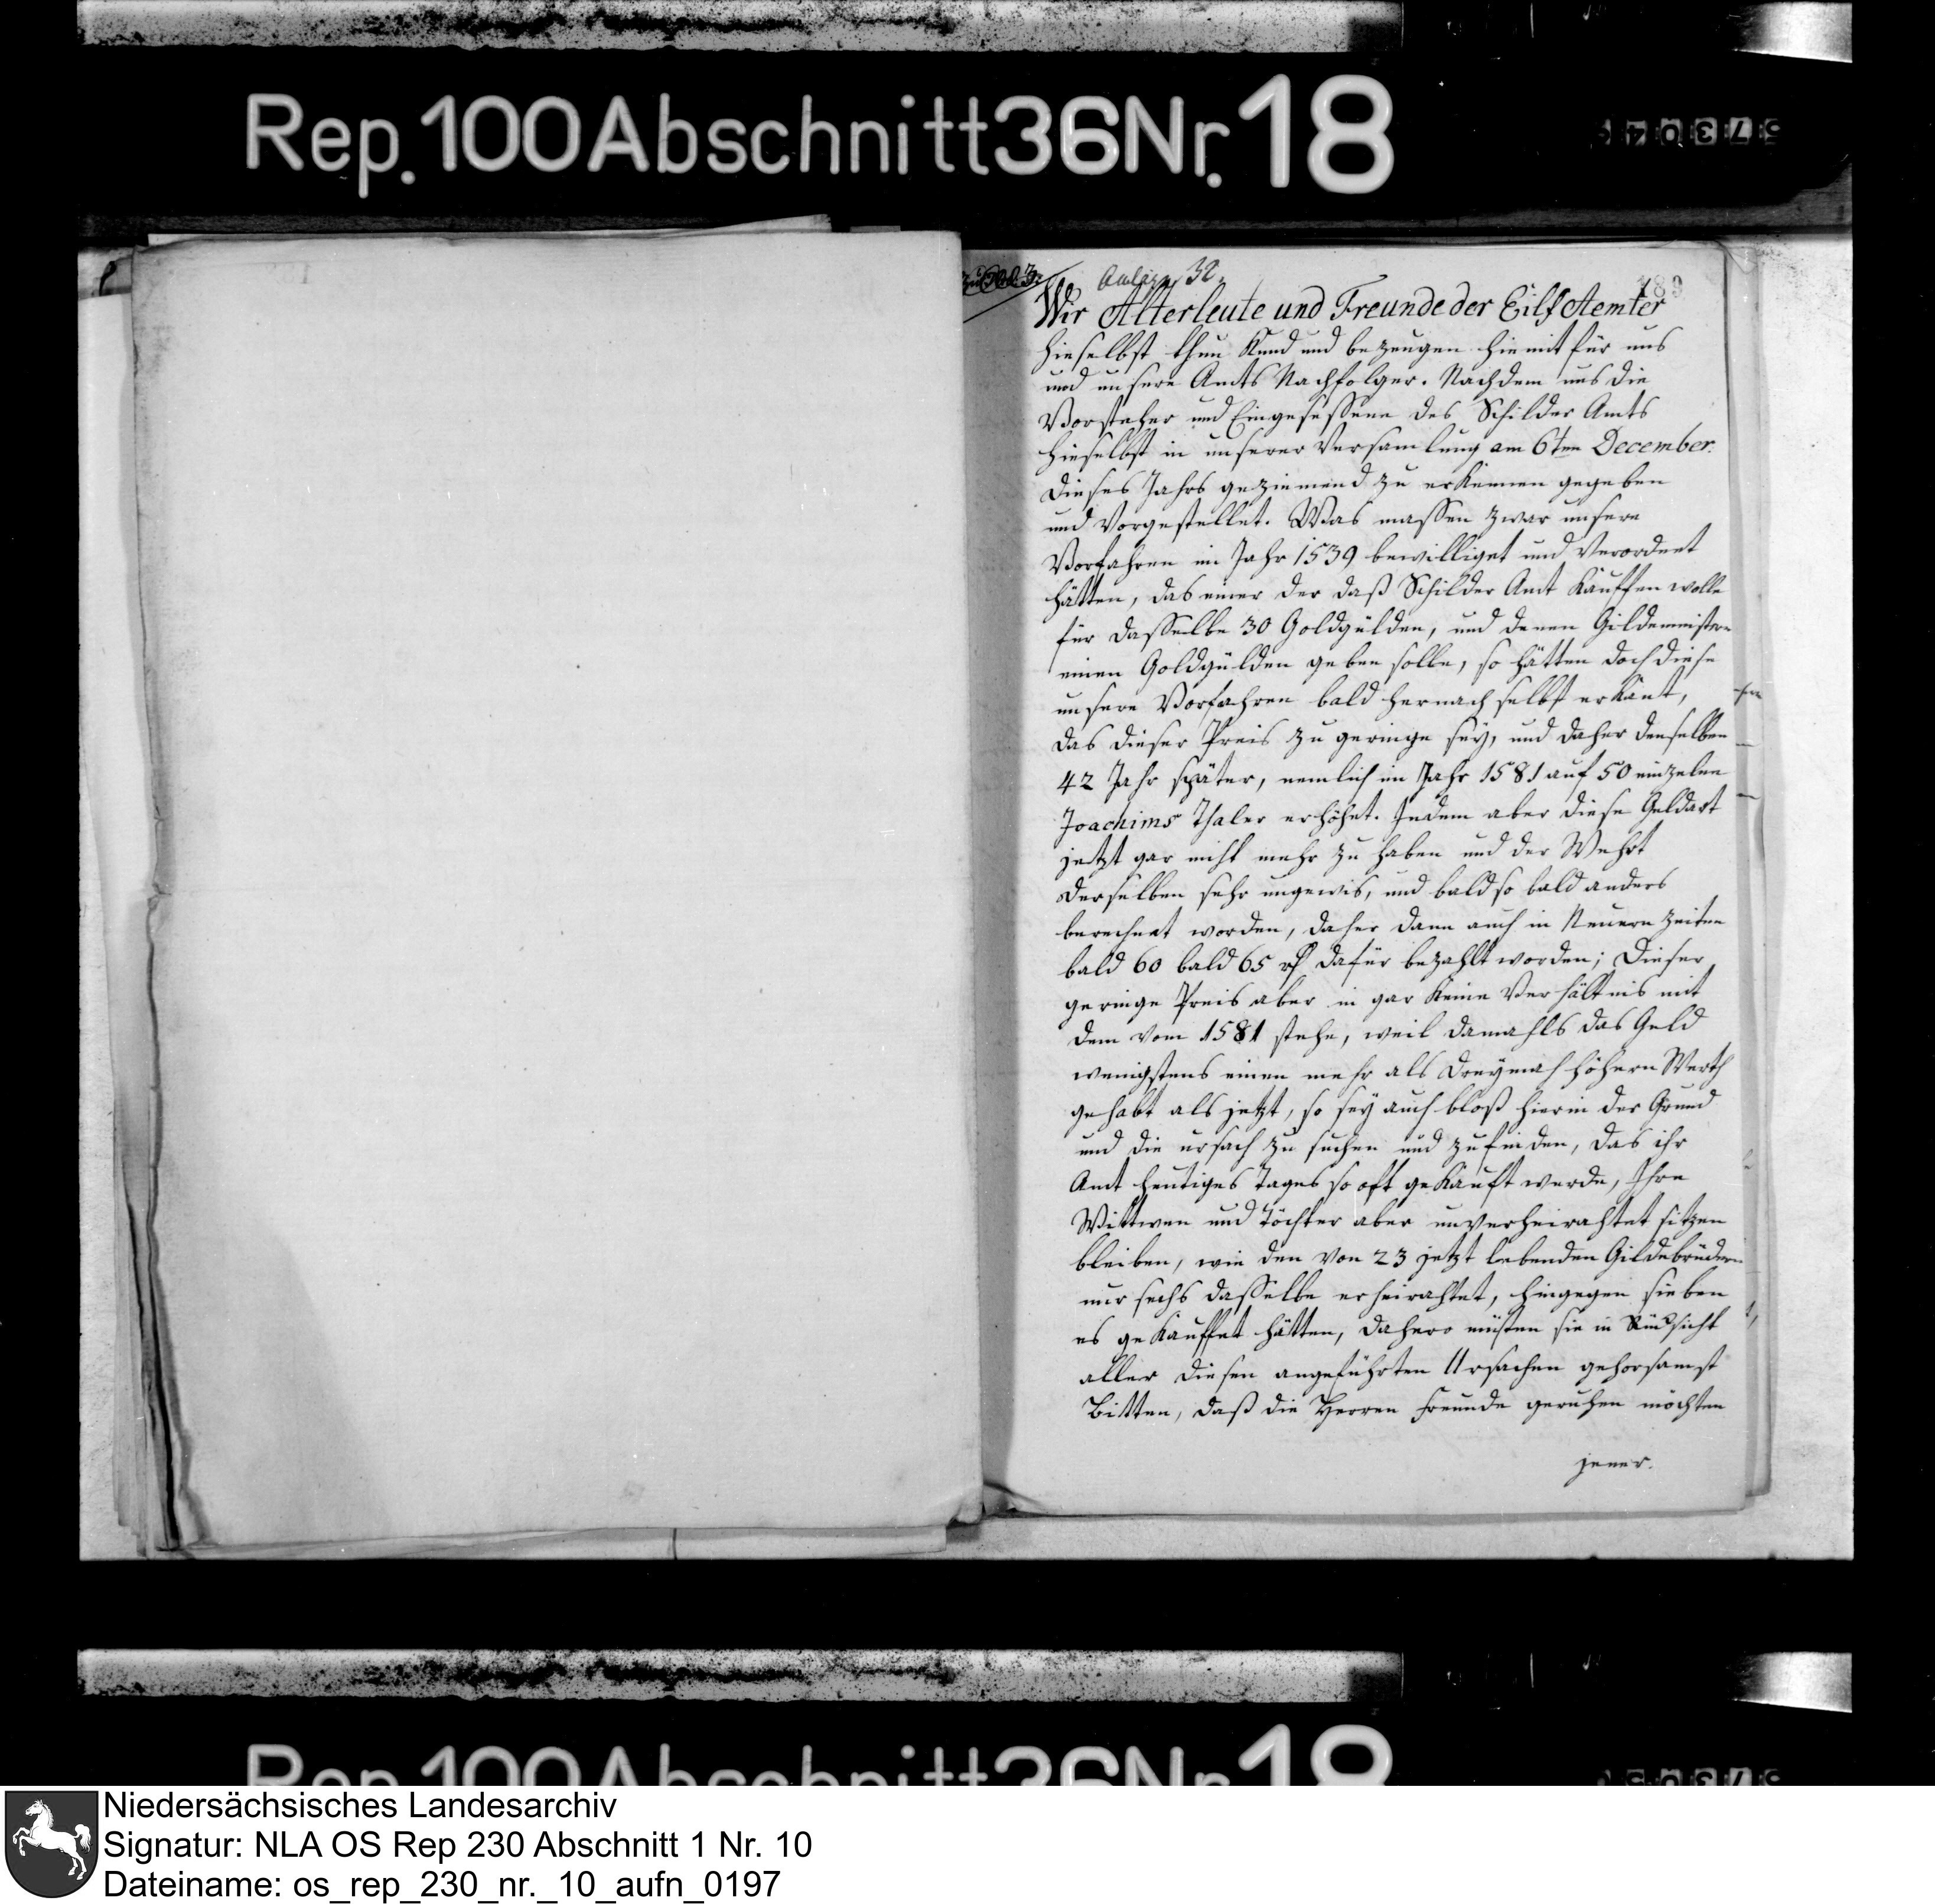 Rep. 100 Abschnitt 36 Nr. 18
Anlage 32.
189
Wir Alterleute und Freunde der Eilf Aemter
hieselbst thun Kund und bezeugen hiemit für uns
und unsere Amts Nachfolger. Nachdem uns die
Vorsteher und Eingesessene des Schilder Amts
hieselbst in unserer Versamlung am 6ten December.
dieses Jahrs geziemend zu erkennen gegeben
und vorgestellet. Was massen zwar unsere
Vorfahren im Jahr 1539 bewilliget und Verordnet
hätten, das einer der daß Schilder Amt Kauffen wolle
für dasselbe 30 Goldgülden, und denen Gildemeistern
einen Goldgülden geben solle, so hätten doch diese
unsere Vorfahren bald hernach selbst erkant,
das dieser Preis zu geringe sey, und daher denselben
42 Jahr später, nemlich im Jahr 1581 auf 50 einzelne
Joachims Thaler erhöhet. Indem aber diese Geldart
jetzt gar nicht mehr zu haben und der Wehrt
derselben sehr ungewis, und bald so bald anders
berechnet worden, daher dann auch in Neuern Zeiten
bald 60 bald 65 rth dafür bezahlt worden; Dieser
geringe Preis aber in gar keine Verhältnis mit
dem vom 1581 stehe, weil damahls das Geld
wenigstens einen mehr als dreymah höhern Werth
gehabt als jetzt, so sey auch bloß hierin der Grund
und die ursach zu suchen und zufinden, das ihr
Amt heutiges Tages so oft gekauft werde, Ihre
Wittwen und Töchter aber unverheirahtet sitzen
bleiben, wie den von 23 jetzt lebenden Gildebrüdern
nur sechs dasselbe erheirahtet, hingegen sieben
es gekauffet hätten, dahero müsten sie in Rücksicht
aller diesen angeführten Ursachen gehorsamst
Bitten, daß die Herren Freunde geruhen möchten
jener.
Niedersächsisches Landesarchiv
Signatur: NLA OS Rep 230 Abschnitt 1 Nr. 10
Dateiname: os_rep_230_nr._10_aufn_0197